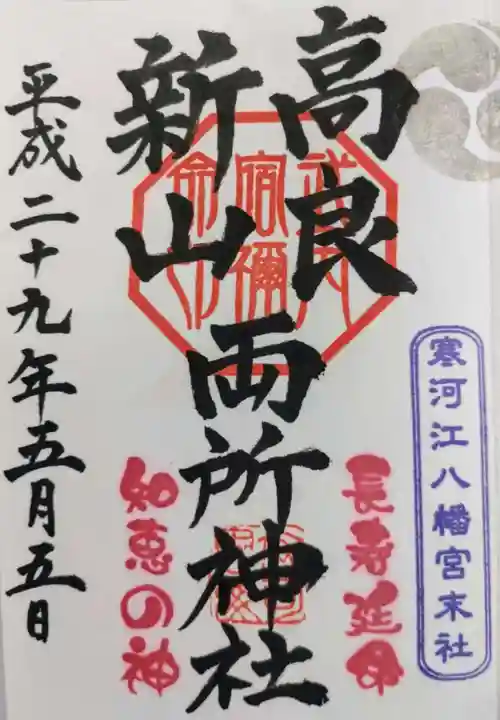 寒河江八幡宮末社
長寿延命
高良
新山
両所神社
知恵の神
平成二十九年五月五日